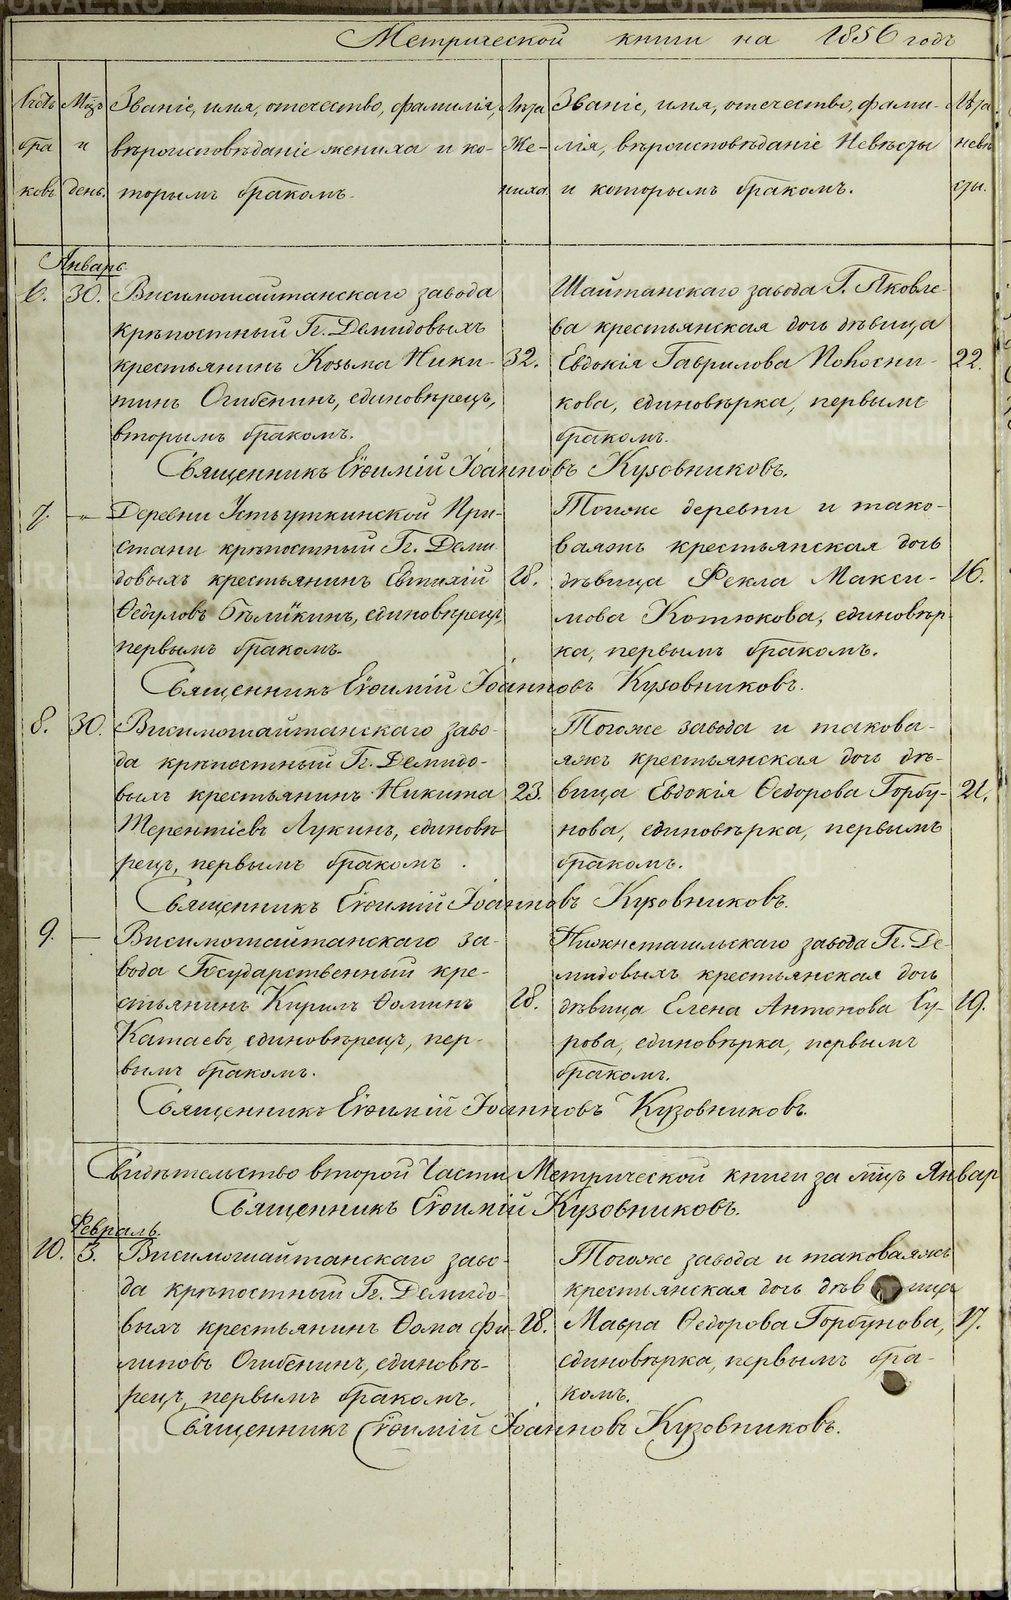 Метрической книги на 1856 годъ
Счетъ браковъ
Мѣцъ и день.
Званіе, имя, отечество, фамилія,
вѣроисповѣданіе жениха и ко-
торымъ бракомъ.
Лѣта жениха
Званіе, имя, отечество, фами-
лія, вѣроисповѣданіе Невѣсты
и которымъ бракомъ.
Лѣта невѣсты.
Январь
6.
30.
Висимошайтанскаго завода
крѣпостный Гг. Демидовыхъ
крестьянинъ Козьма Ники-
тинъ Огибенинъ, единовѣрецъ,
вторымъ бракомъ.
32.
Шайтанскаго завода Г. Яковле-
ва крестьянская дочь дѣвица
Евдокія Гаврилова
кова, единовѣрка, первымъ
бракомъ.
22.
Священникъ Евѳимій Іоанновъ Кузовниковъ.
7.
— „ —
Деревни Устьуткинской При-
стани крѣпостный Гг. Деми
довыхъ крестьянинъ Евтихій
Ѳедуловъ единовѣрецъ,
первымъ бракомъ.
18.
Тогоже деревни и тако-
ваяжъ крестьянская дочь
дѣвица Ѳекла Макси-
мова Котюкова, единовѣр-
ка, первымъ бракомъ.
16.
Священникъ Евѳимій Іоанновъ Кузовниковъ.
8.
30.
Висимошайтанскаго заво-
да крѣпостный Гг. Демидо-
выхъ крестьянинъ Никита
Терентіевъ Лукинъ, единовѣ-
рецъ, первымъ бракомъ.
23.
Тогоже завода и такова-
яжъ крестьянская дочь дѣ-
вица Евдокія Ѳедорова Горбу-
нова, единовѣрка, первымъ
бракомъ.
21.
Священникъ Евѳимій Іоанновъ Кузовниковъ.
9.
—
Висимошайтанскаго за-
вода Государственный кре-
стьянинъ Кирилъ Ѳоминъ
Катаевъ, единовѣрецъ, пер-
вымъ бракомъ.
18.
Нижнетагильскаго завода Гг. Де-
мидовыхъ крестьянская дочь
дѣвица Елена Антонова Су-
рова, единовѣрка, первымъ
бракомъ.
19.
Священникъ Евѳимій Іоанновъ Кузовниковъ.
Свидѣтельство второй Части Метрической книги за мцъ Январ
Священникъ Евѳимій Кузовниковъ.
Февраль.
10.
3.
Висимошайтанскаго заво-
да крѣпостный Гг. Демидо-
выхъ крестьянинъ Ѳома Фи-
липовъ Огибенинъ, единовѣ-
рецъ, первымъ бракомъ.
18.
Тогоже завода и таковаяжъ
крестьянская дочь дѣвица
Мавра Ѳедорова Горбунова,
единовѣрка, первымъ бра-
комъ.
17.
Священникъ Евѳимій Іоанновъ Кузовниковъ.
METRIKI.GASO-URAL.RU